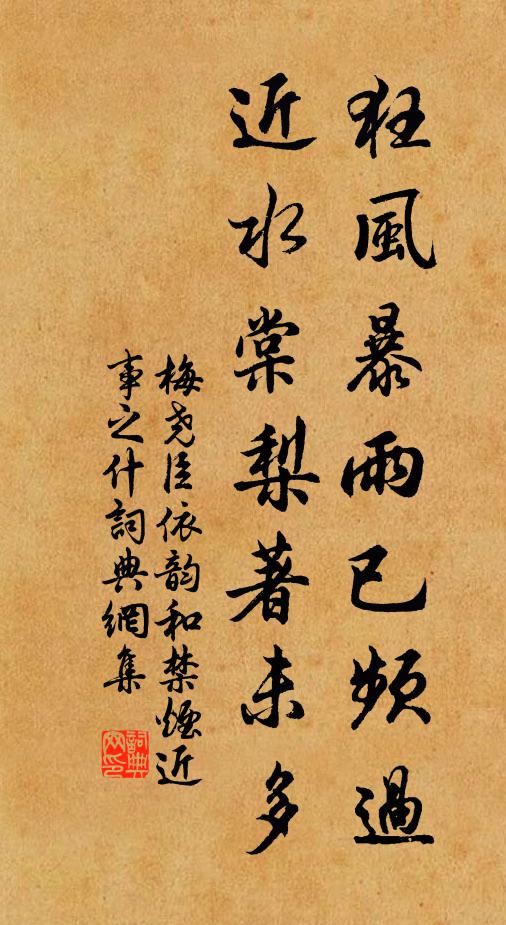 狂風暴雨已頻過
近水棠梨著未多
梅尧臣依韵和禁煙近
事之什詞典網集
詞典網印